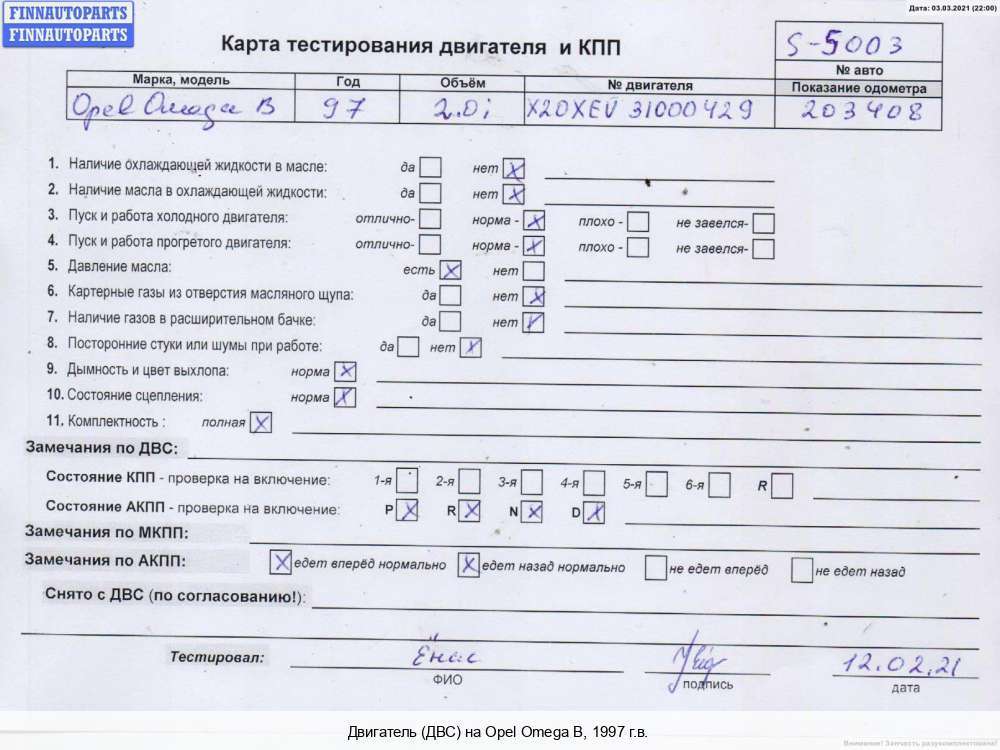 FINNAUTOPARTS
FINNAUTOPARTS
Дата: 03.03.2021 (22:00)
Карта тестирования двигателя и КПП
S-5003
№ авто
Марка, модель Год Объём № двигателя Показание одометра
Opel Omega B 97 2.0i X20XEV 31000429 203408
1. Наличие охлаждающей жидкости в масле: да нет
2. Наличие масла в охлаждающей жидкости: да нет
3. Пуск и работа холодного двигателя: отлично- норма - плохо - не завелся-
4. Пуск и работа прогретого двигателя: отлично- норма - плохо - не завелся-
5. Давление масла: есть нет
6. Картерные газы из отверстия масляного щупа: да нет
7. Наличие газов в расширительном бачке: да нет
8. Посторонние стуки или шумы при работе: да нет
9. Дымность и цвет выхлопа: норма
10. Состояние сцепления: норма
11. Комплектность : полная
Замечания по ДВС:
Состояние КПП - проверка на включение: 1-я 2-я 3-я 4-я 5-я 6-я R
Состояние АКПП - проверка на включение: P R N D
Замечания по МКПП:
Замечания по АКПП: едет вперёд нормально едет назад нормально не едет вперёд не едет назад
Снято с ДВС (по согласованию!):
Тестировал: 12.02.21
ФИО подпись дата
Двигатель (ДВС) на Opel Omega B, 1997 г.в.
Внимание! Запчасть разукомплектована!